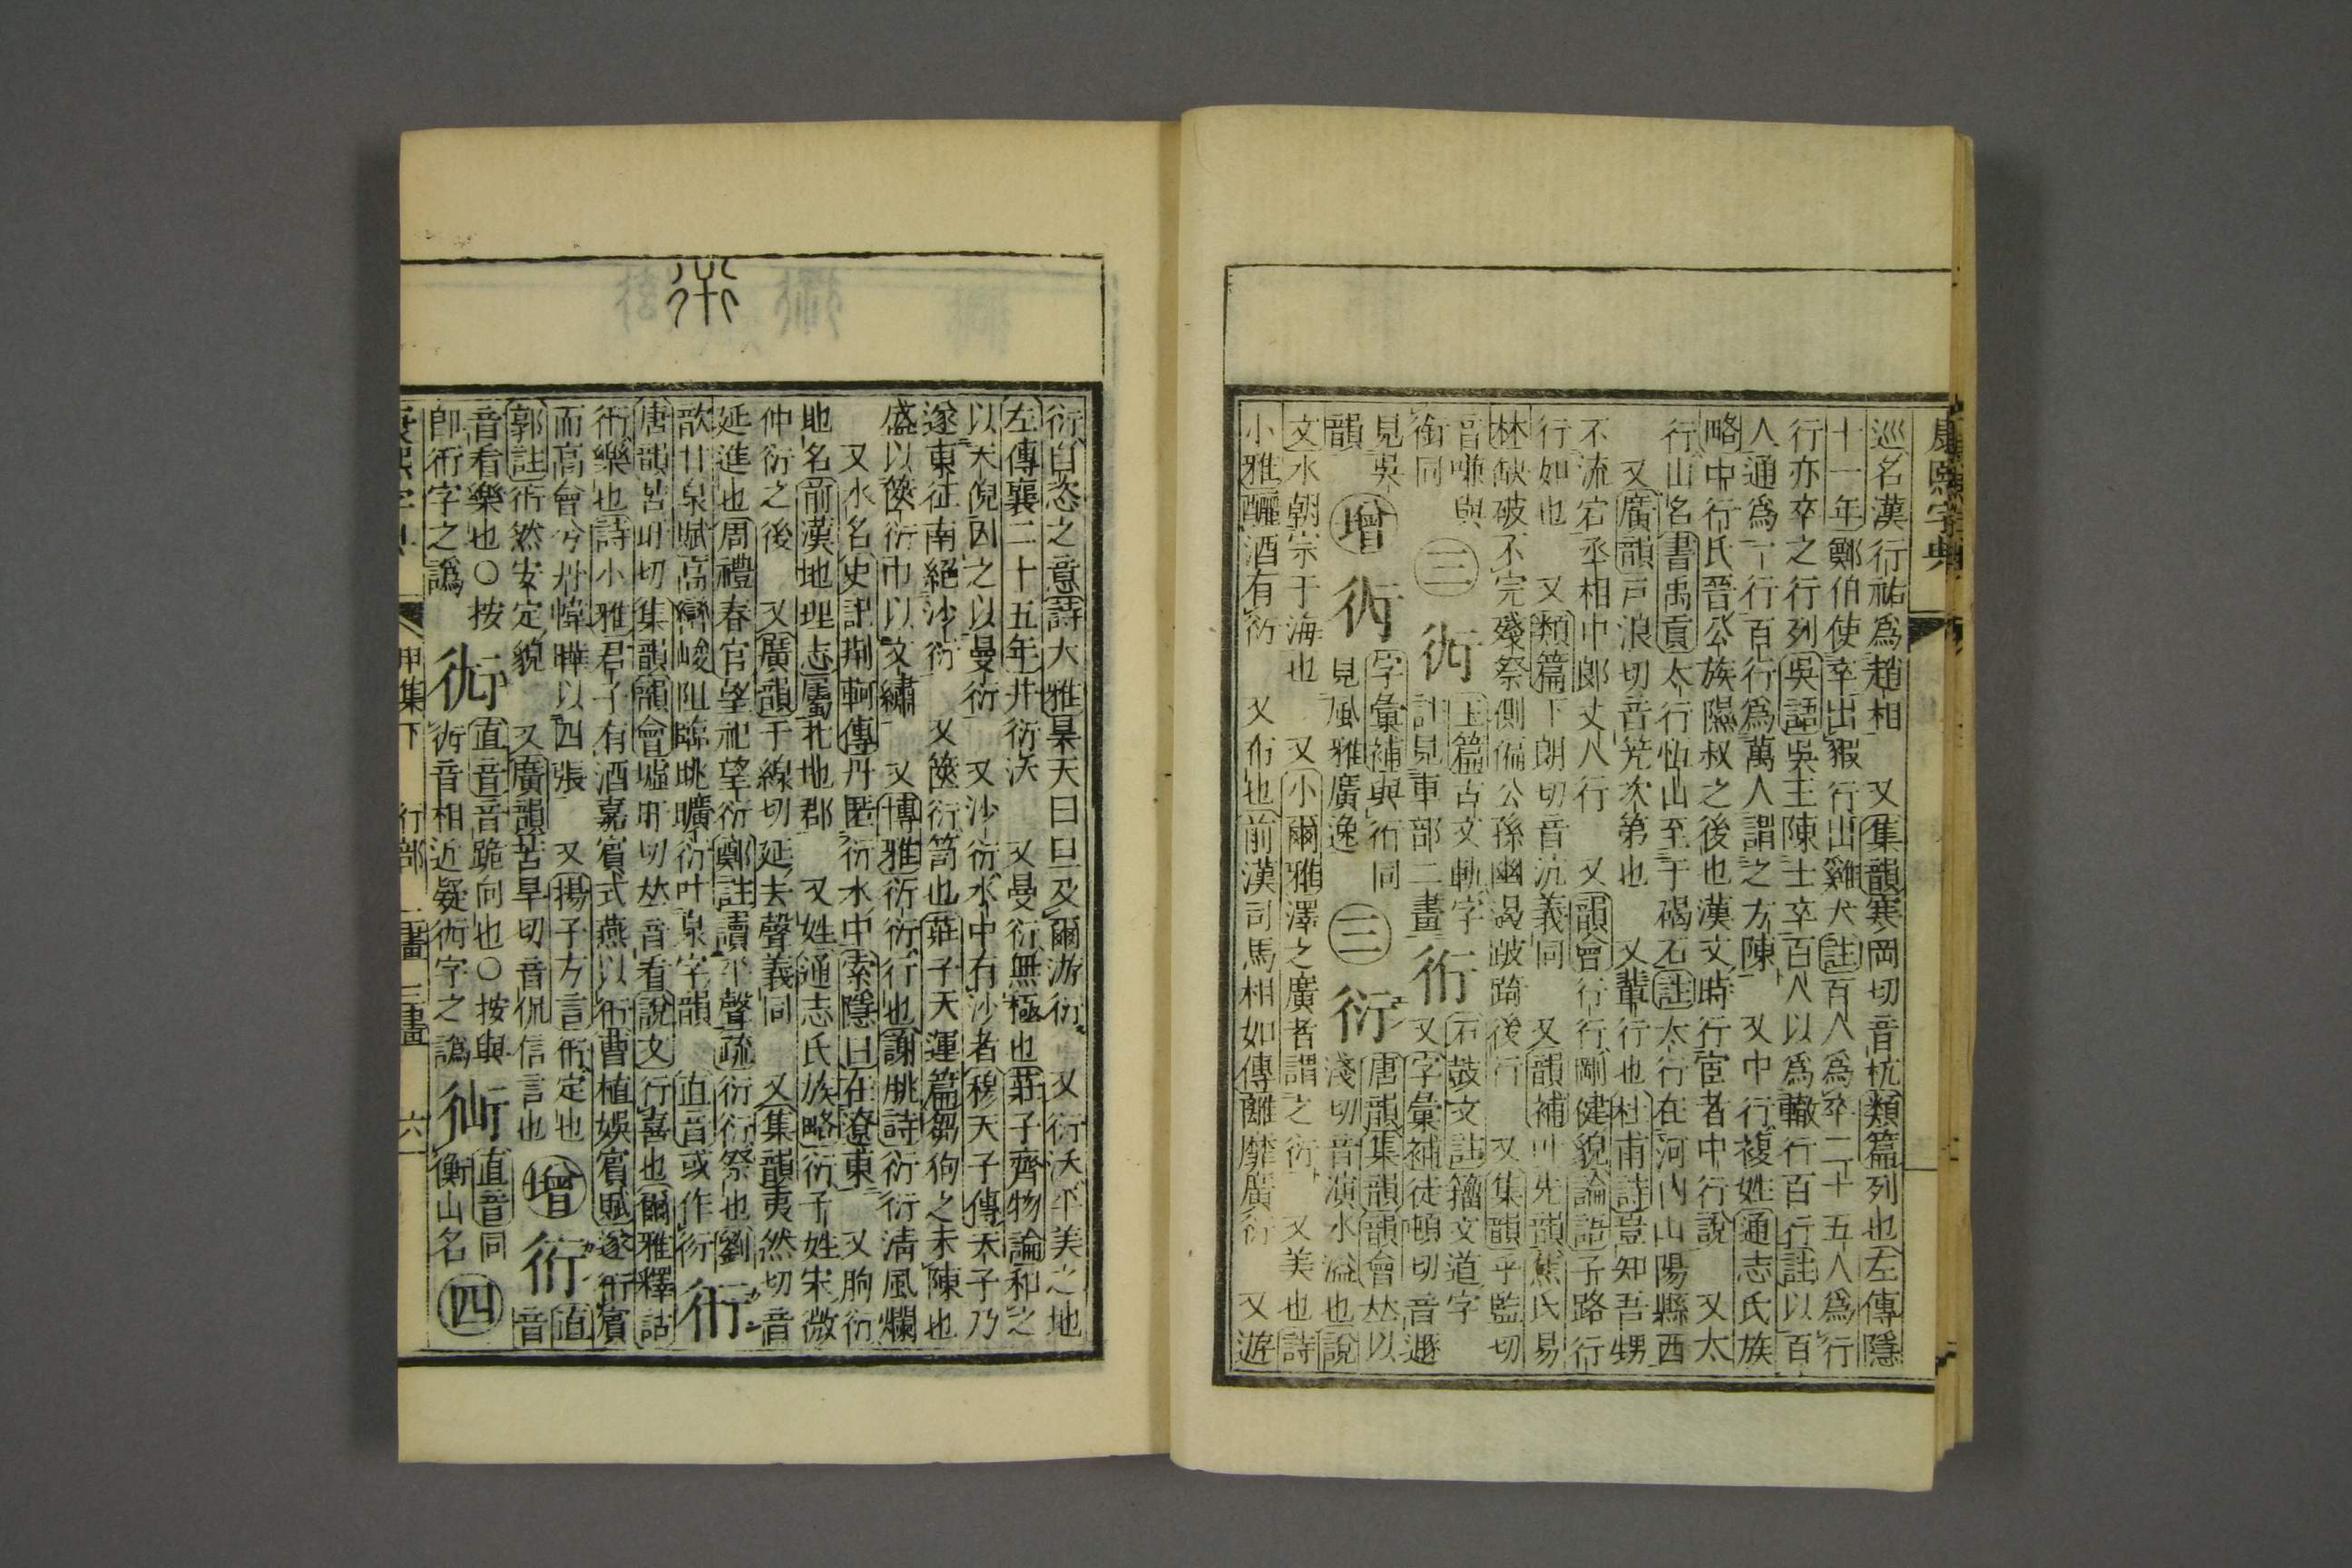 康熙字典
巡名漢行祐爲趙相　又集韻寒岡切音杭類篇列也左傳隱
十一年鄭伯使卒出豭行出雞犬註百人爲卒二十五人爲行
行亦卒之行列吳語吳王陳士卒百人以爲轍行百行註以百
人通爲一行百行爲萬人謂之方陳　又中行複姓通志氏族
略中行氏晉公族隰叔之後也漢文時行宦者中行說　又太
行山名書禹貢太行恆山至于碣石註太行在河內山陽縣西
又廣韻戸浪切音笐次第也　又輩行也杜甫詩豈知吾甥
不流宕丞相中郎丈人行　又韻會行行剛健貌論語子路行
行如也　又類篇下朗切音沆義同　又韻補叶先韻焦氏易
林缺破不完殘祭側偏公孫幽遏跛踦後行　又集韻乎監切
音嗛與
銜同
三
上篇古文軌字
註見車部二畫
石鼓文註籀文道字
又字彙補徒頓切音遯
見吳
韻
增
字彙補與衍同
見風雅廣逸
三
衍
唐韻集韻韻會𠀤以
淺切音演水溢也說
文水朝宗于海也　又小爾雅澤之廣者謂之衍　又美也詩
小雅釃酒有衍　又布也前漢司馬相如傳離靡廣衍　又遊
衍自恣之意詩大雅昊天曰旦及爾游衍　又衍沃平美之地
左傳襄二十五年井衍沃　又曼衍無極也莊子齊物論和之
以天倪因之以曼衍　又沙衍水中有沙者穆天子傳天子乃
遂東征南絕沙衍　又篋衍笥也莊子天運篇芻狗之未陳也
盛以篋衍巾以文繡　又博雅衍衍行也謝朓詩衍衍清風爛
又水名史記荆軻傳丹匿衍水中索隱曰在遼東　又朐衍
地名前漢地理志屬北地郡　又姓通志氏族略衍子姓宋微
仲衍之後　又廣韻于線切延去聲義同　又集韻夷然切音
延進也周禮春官望祀望衍鄭註讀平聲疏衍衍祭也劉
歆甘泉賦高巒峻阻臨眺曠衍叶泉字韻　直音或作𧗪
衎
唐韻苦旰切集韻韻會墟旰切𠀤音看說文行喜也爾雅釋詁
衎樂也詩小雅君子有酒嘉賓式燕以衎曹植娛賓賦遂衎賓
而高會兮丹幃曄以四張　又揚子方言衎定也
郭註衎然安定貌　又廣韻苦旱切音侃信言也
增
直
音
音看樂也○按
卽衎字之譌
直音音跪向也○按與
術音相近疑術字之譌
直音同
衡山名
四
康熙字典　申集下　行部　二畫　三畫　六